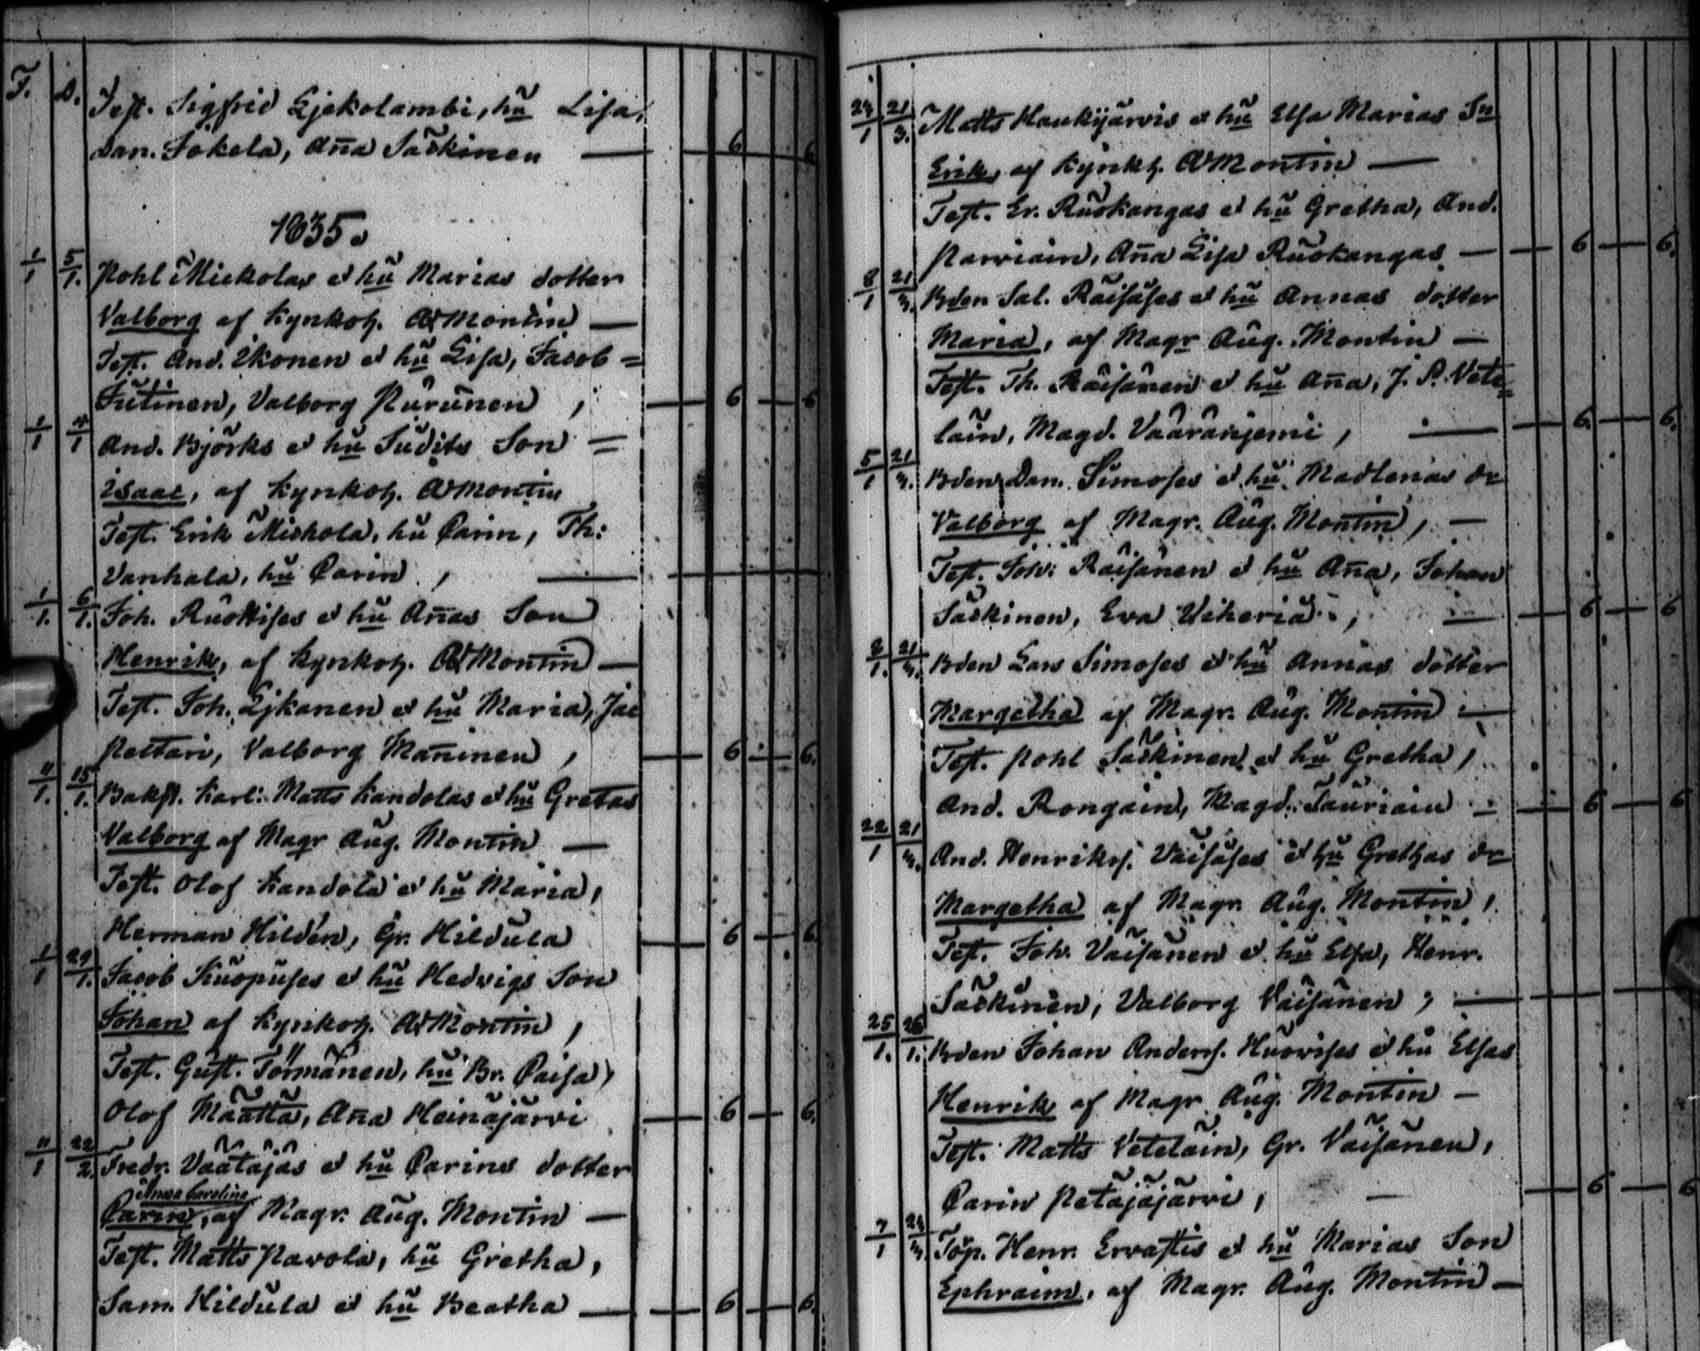 F. D.
Test. Sigfrid Ljekolambi, hũ Lisa,
Dan. Jokela, Ana Säckinen — 6 6
1835.
1/1 5/1. Pohl Mickolas et hũ Marias dotter
Valborg af Kynkoh. A Montin —
Test. And. Ikonen et hũ Lisa, Jacob =
Jutinen, Valborg Purunen, — 6 — 6
1/1 4/1 And. Björks et hũ Judits Son =
Isaac, af Kynkoh. A Montin
Test. Erik Mickola, hũ Carin, Th:
Vanhala, hũ Carin, —
1/1. 6/1. Joh. Ruottises et hũ Anas Son
Henrik, af Kynkoh. A Montin —
Test. Joh. Ljkanen et hũ Maria, Jac
Pettari, Valborg Maninen, — 6 — 6.
11/1. 15/1. Karl: Matts Kandolas et hũ Gretas
Valborg af Magr Aug. Montin —
Test. Olof Kandola et hũ Maria,
Herman Hildén, Gr. Hildula — 6 — 6.
1/1 29/1. Jacob Kuopuses et hũ Hedvigs Son
Johan af Kynkoh. A Montin,
Test. Gust. Törmänen, hũ Br. Caisa,
Olof Määttä, Ana Heinäjärvi — 6 — 6.
11/1 22/2. Fredr. Väätäjäs et hũ Carins dotter
Anna Carolina
Carin, af Magr. Aug. Montin —
Test. Matts Pavola, hũ Gretha,
Sam. Hildula et hũ Beatha — 6 — 6.
24/1 21/3. Matts Haukijärvis et hũ Elsa Marias Sn
Erik, af Kynkh. A Montin —
Test. Er. Ruokangas et hũ Gretha, And.
Parviain, Ana Lisa Ruokangas — 6 — 6.
8/1 21/3. Bden Sal. Räisäses et hũ Annas dotter
Maria, af Magr Aug. Montin —
Test. Th. Räisänen et hũ Ana, J. P. Vete=
läin, Magd. Vaaranjemi, — 6 — 6.
5/1 21/3. Bden Dan. Simoses et hũ Madlenas dr
Valborg af Magr. Aug. Montin, —
Test. Joh: Räisänen et hũ Ana, Johan
Säckinen, Eva Vikeriä, — 6 — 6
8/1. 21/3. Bden Lars Simoses et hũ Annas dotter
Margetha af Magr. Aug. Montin —
Test. Pohl Säckinen et hũ Gretha,
And. Rongain, Magd. Tauriain — 6 — 6
22/1 21/3. And. Henriks. Väisäses et hũ Grethas dr
Margetha af Magr. Aug. Montin,
Test. Joh. Väisänen et hũ Elsa, Henr.
Säckinen, Valborg Väisänen, —
25/1. 26/1. Bden Johan Anders. Huovises et hũ Elsas
Henrik af Magr Aug. Montin —
Test. Matts Veteläin, Gr. Väisänen,
Carin Petäjäjärvi, — 6 — 6
7/1 24/3. Torp. Henr. Ervastis et hũ Marias Son
Ephraim, af Magr. Aug. Montin —